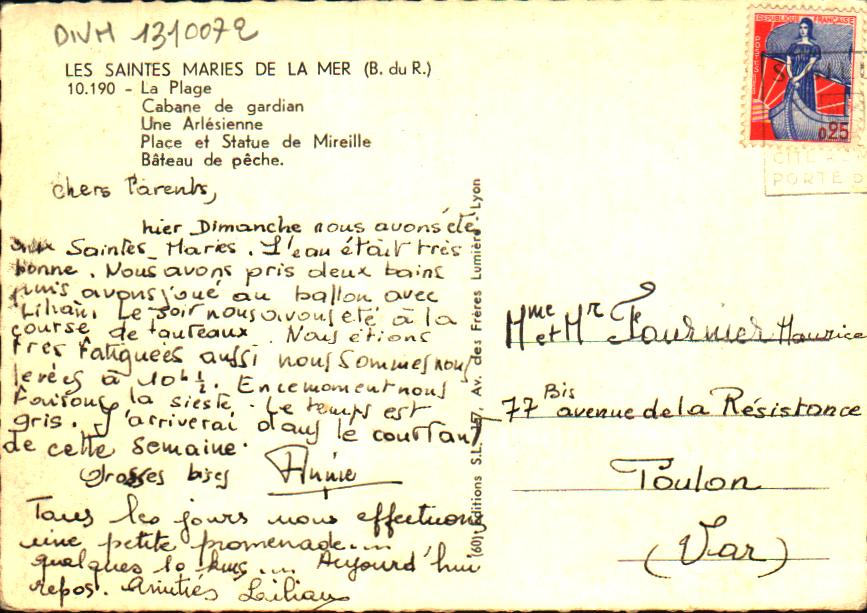 DIVM 1310072
LES SAINTES MARIES DE LA MER (B. du R.)
10.190 - La Plage
Cabane de gardian
Une Arlésienne
Place et Statue de Mireille
Bâteau de pêche.
chers Parents,
hier Dimanche nous avons été
aux Saintes Maries. L'eau était très
bonne. Nous avons pris deux bains
puis avons joué au ballon avec
Liliane. Le soir nous avons été à la
course de taureaux. Nous étions
très fatiguées aussi nous sommes nous
levées à 10h ½. En ce moment nous
faisons la sieste. Le temps est
gris. J'arriverai dans le courrant
de cette semaine.
Grosses bises Annie
Tous les jours nous effectuons
une petite promenade...
quelques 10 kms... Aujourd'hui
repos. Amitiés Liliane
(60) Editions S.L. , Av. des Frères Lumière - Lyon
REPUBLIQUE FRANÇAISE
POSTES
0,25
PORTE D
Mme et Mr Fournier Maurice
77 Bis avenue de la Résistance
Toulon
(Var)